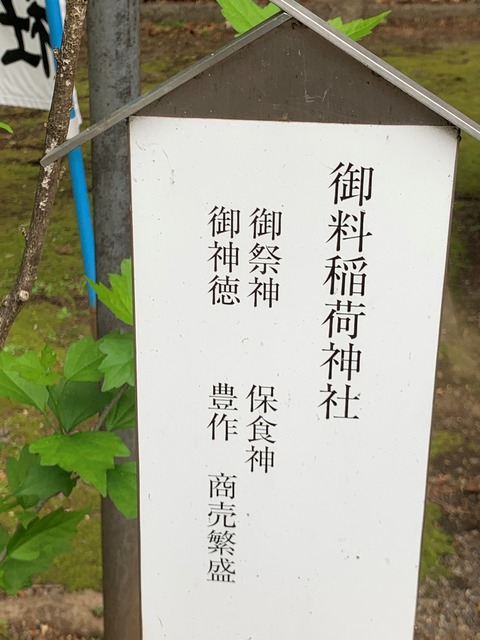 御料稲荷神社
御祭神 保食神
御神徳 豊作 商売繁盛